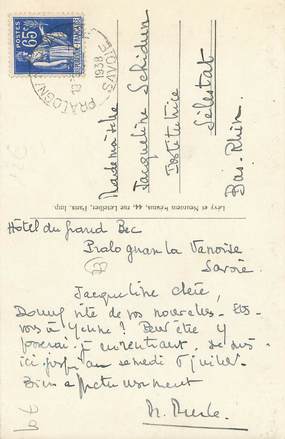 POSTES
65c
REPUBLIQUE FRANÇAISE
PRALOGNAN
SAVOIE
1938
Mademoiselle
Jacqueline Schidun
Institutrice
Sélestat
Bas-Rhin
Lévy et Neurdein Réunis, 44, rue Letellier, Paris, Imp.
Hôtel du Grand Bec
Pralognan la Vanoise
Savoie
73
Jacqueline chère,
Donnez vite de vos nouvelles - Etes
vous à Yenne? Peut être y
passerai-je en rentrant. Je suis
ici jusqu'au samedi 6 juillet.
Bien affectueusement